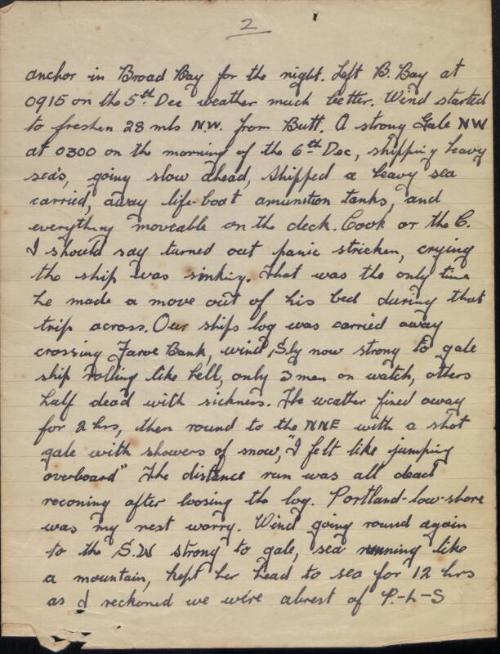 2
anchor in Broad Bay for the night. Left B. Bay at
0915 on the 5th Dec weather much better. Wind started
to freshen 28 mls N.W. from Butt. A strong Gale NW
at 0300 on the morning of the 6th Dec, shipping heavy
sea's, going slow ahead, shipped a heavy sea
carried, away life-boat amunition tanks, and
everything moveable on the deck. Cook or the C.
I should say turned out panic stricken, crying
the ship was sinking. That was the only time
he made a move out of his bed during that
trip across. Our ships log was carried away
crossing Faroe Bank, wind, Sly now strong to gale
ship rolling like hell, only 3 men on watch, others
half dead with sickness. The weather fined away
for 2 hrs, then round to the NNE with a shot
gale with showers of snow, "I felt like jumping
overboard" The distance run was all dead
reconing after loosing the log. Portland-low-shore
was my nest worry. Wind going round again
to the S.W strong to gale, sea running like
a mountain, kept her head to sea for 12 hrs
as I reckoned we were abrest of P.-L-S